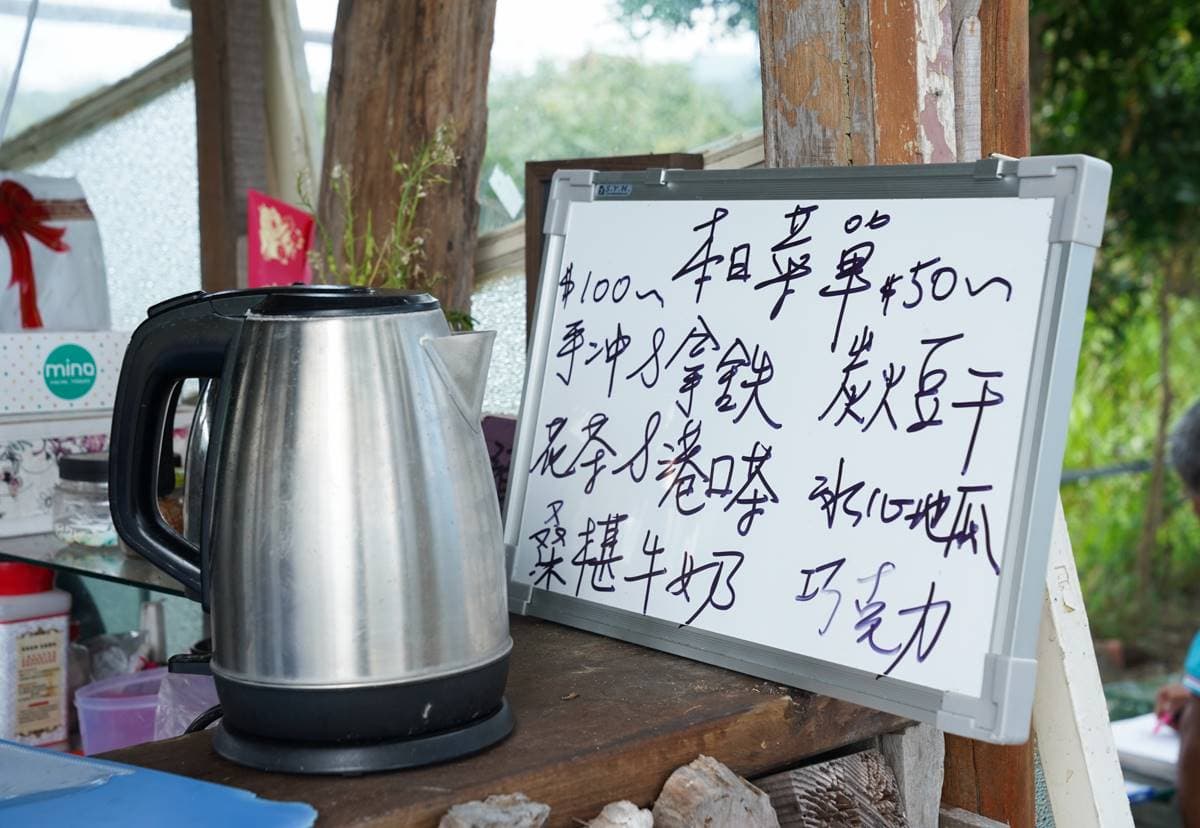 S.Y.N.
本日菜單
$100~
手冲&拿鐵
花茶&港口茶
桑椹牛奶
$50~
炭火豆干
冰心地瓜
巧克力
mino